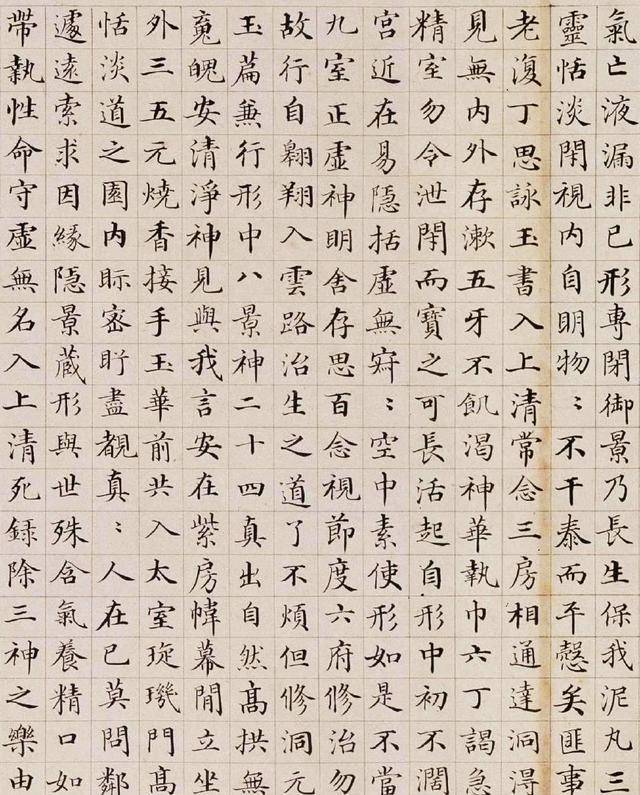 氣亡液漏非已形專閉御景乃長生保我泥丸三
靈恬淡閑視內自明物〻不干泰而平愨矣匪事
老復丁思詠玉書入上清常念三房相通達洞得
見無內外存漱五牙不飢渴神華執巾六丁謁急
精室勿令泄閇而寶之可長活起自形中初不濶
宮近在易隱括虛無㝛〻空中素使形如是不當
九室正虛神明舍存思百念視節度六府修治勿
故行自翱翔入雲路治生之道了不煩但修洞元
玉篇兼行形中八景神二十四真出自然髙拱無
䰟魄安清淨神見與我言安在紫房幃幕間立坐
外三五元燒香接手玉華前共入太室琁璣門髙
恬淡道之園內眎密盻盡覩真〻人在已莫問鄰
遽遠索求因緣隱景蔵形與世殊含氣養精口如
帶執性命守虛無名入上清死録除三神之樂由